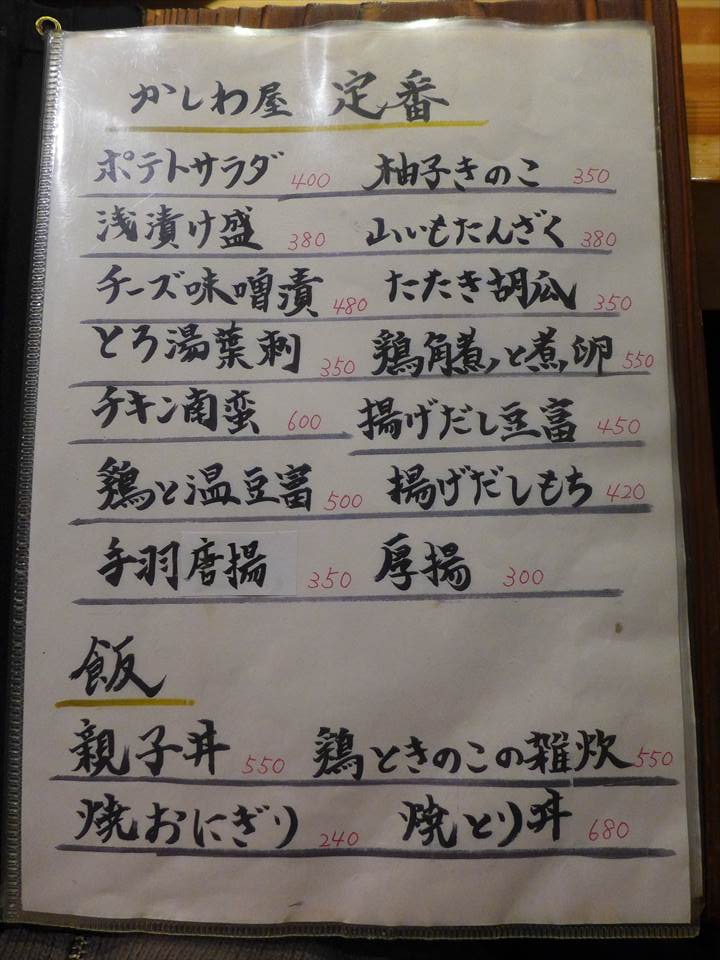 かしわ屋 定番
ポテトサラダ 400 柚子きのこ 350
浅漬け盛 380 山いもたんざく 380
チーズ味噌漬 480 たたき胡瓜 350
とろ湯葉刺 350 鶏角煮と煮卵 550
チキン南蛮 600 揚げだし豆富 450
鶏と温豆富 500 揚げだしもち 420
手羽唐揚 350 厚揚 300
飯
親子丼 550 鶏ときのこの雑炊 550
焼おにぎり 240 焼とり丼 680